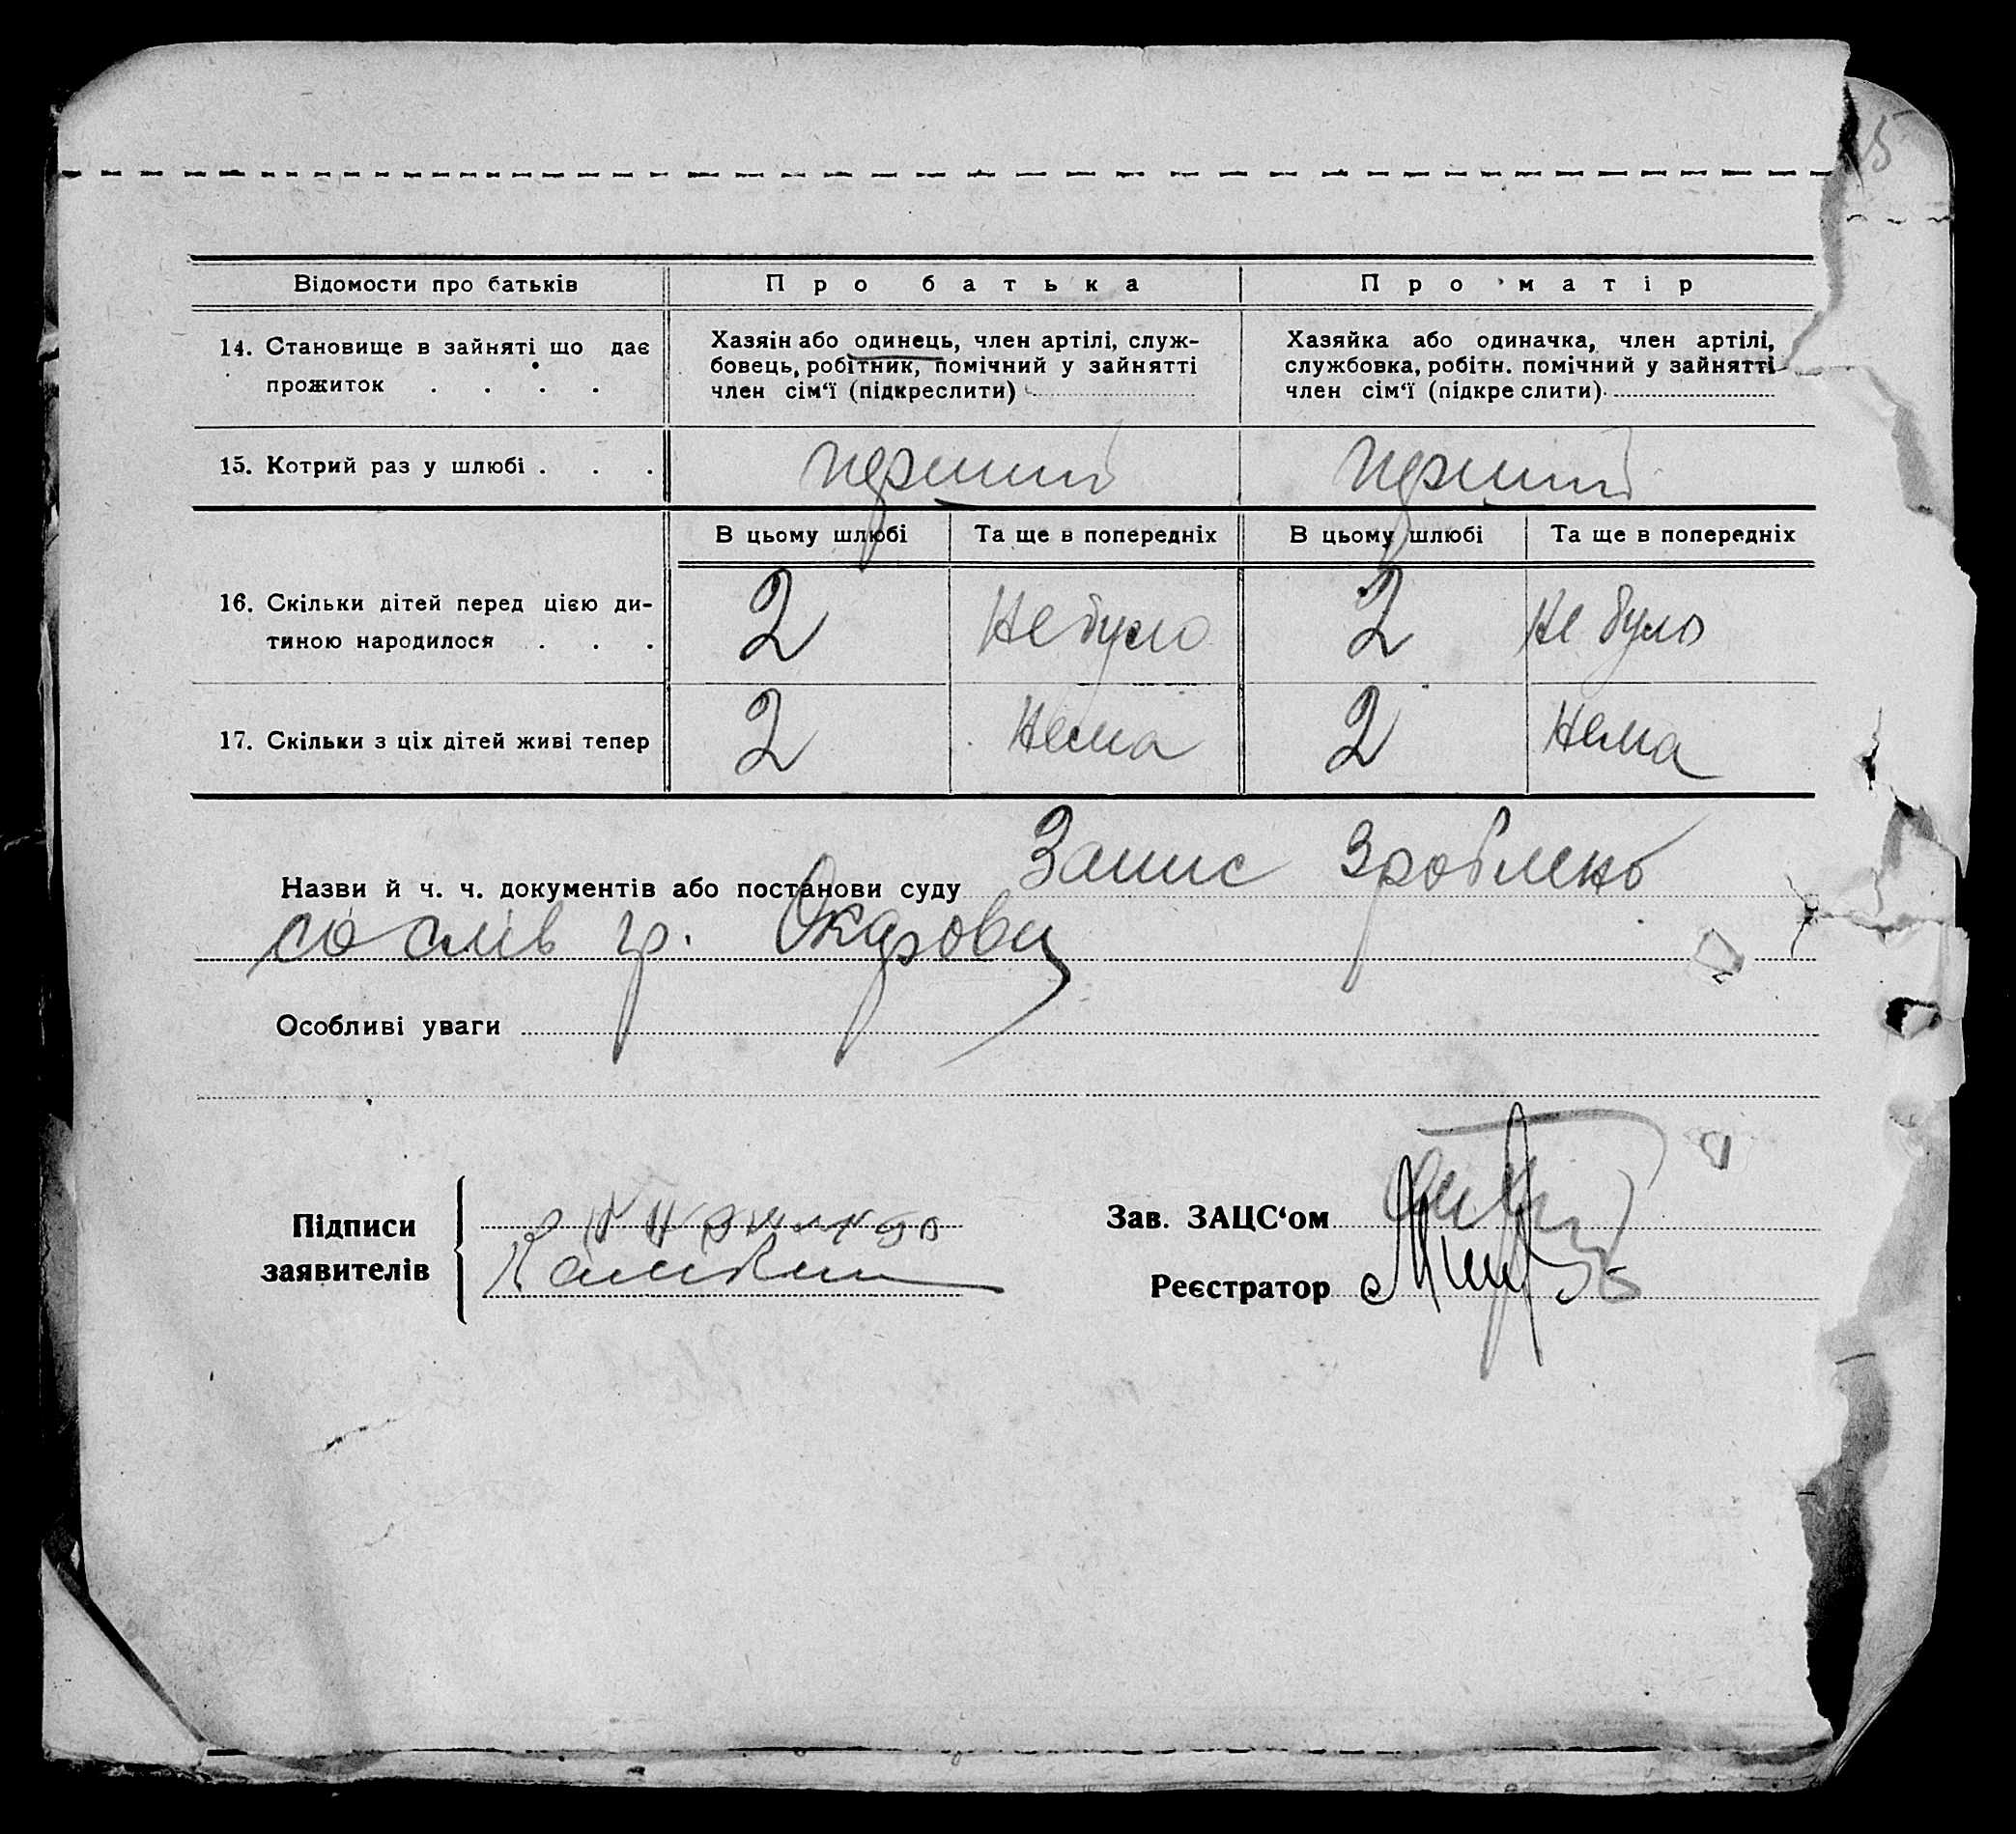 5
Відомости про батьків П р о б а т ь к а П р о м а т і р
14. Становище в зайняті що дає прожиток . . . .
Хазяін або одинець, член артілі, служ-
бовець, робітник, помічний у зайнятті
член сім‘ї (підкреслити)
Хазяйка або одиначка, член артілі,
службовка, робітн. помічний у зайнятті
член сім‘ї (підкреслити)
15. Котрий раз у шлюбі . . . перший перший
В цьому шлюбі Та ще в попередніх В цьому шлюбі Та ще в попередніх
16. Скільки дітей перед цією ди-
тиною народилося . . . 2 Не було 2 Не було
17. Скільки з ціх дітей живі тепер 2 Нема 2 Нема
Назви й ч. ч. документів або постанови суду Запис зроблено
со слів гр.
Особливі уваги
Підписи
заявителів
Зав. ЗАЦС‘ом
Реєстратор